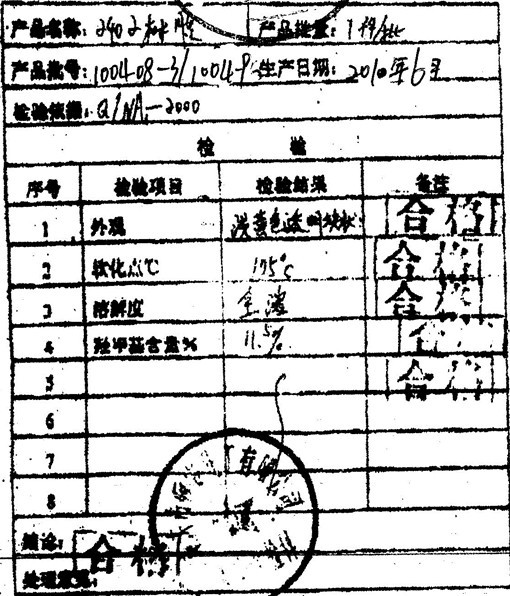 产品名称：2402树脂 产品批量：1
产品批号：1004-08-3/1004-9 生产日期：2010年6
检验依据：Q/NA-2000
检 验
序号 检验项目 检验结果 备注
1 外观 淡黄色透明块状 合格
2 软化点℃ 175℃ 合格
3 溶解度 全溶 合格
4 羟甲基含量% 11.5%
5 合格
6
7
8
有限公司
结论：合格
处理意见：